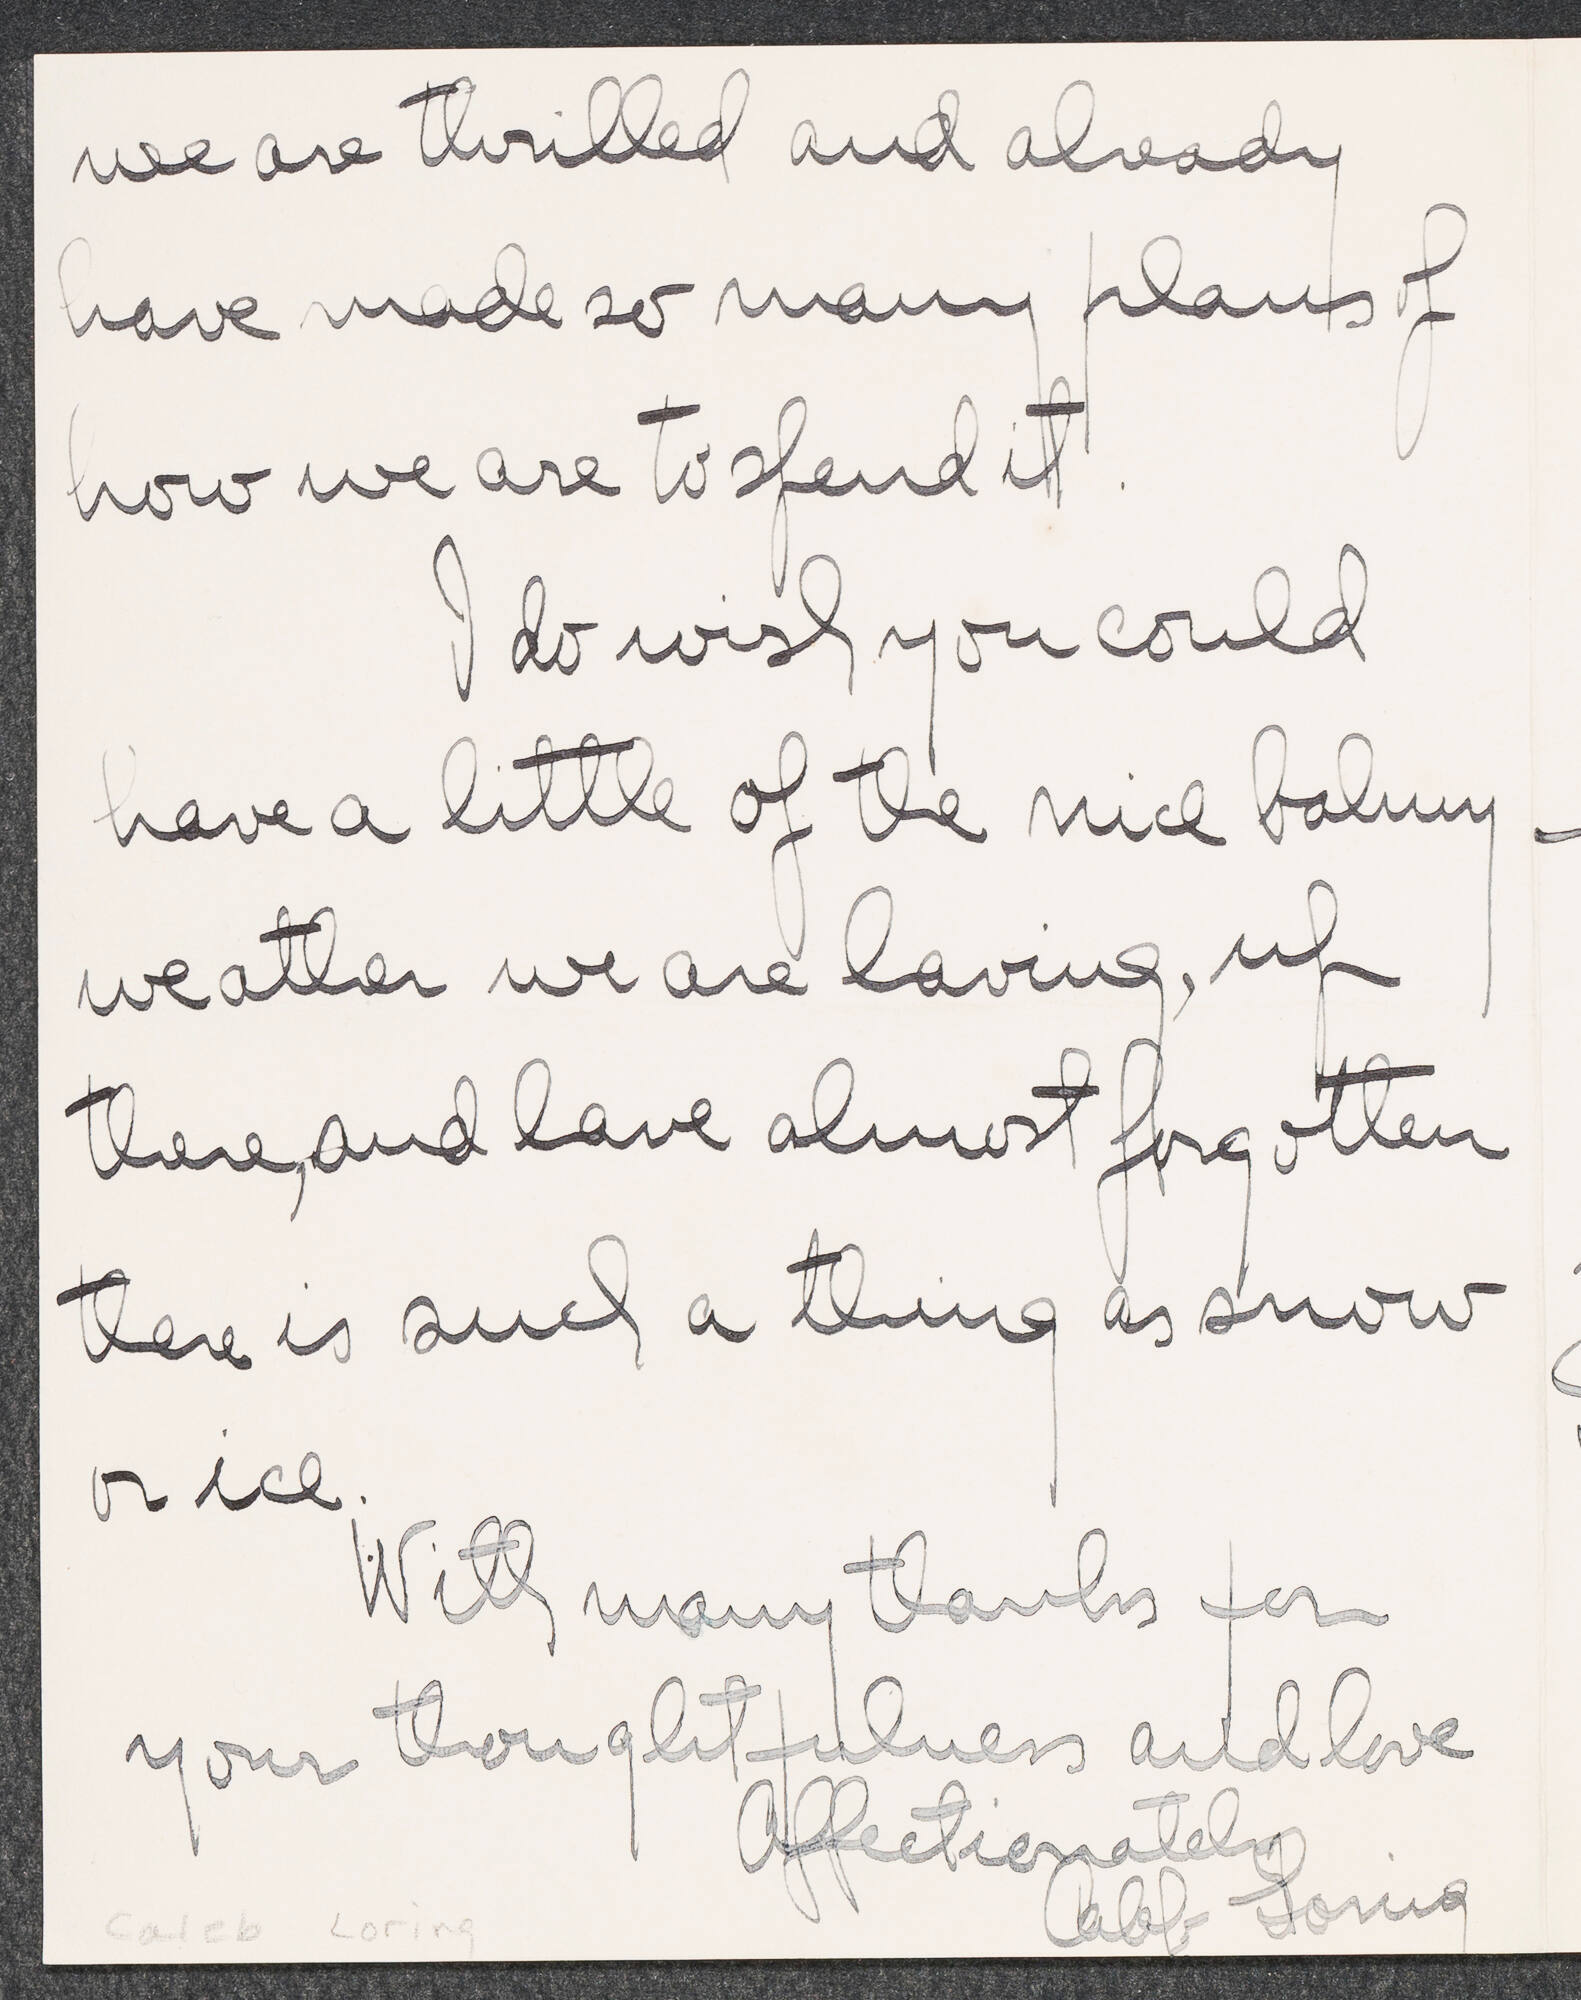 we are thrilled and already
have made so many plans of
how we are to spend it.
I do wish you could
have a little of the nice balmy
weather we are having, up
there, and have almost forgotten
there is such a thing as snow
or ice.
With many thanks for
your thoughtfulness and love
Affectionately
Loring
Caleb Loring